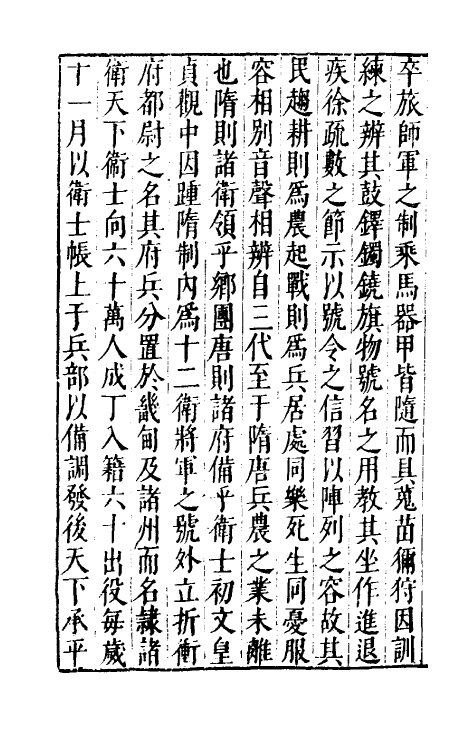 卒旅師軍之制乘馬器甲皆隨而具蒐苗獮狩因訓
練之辨其鼓鐸鐲鐃旗物號名之用教其坐作進退
疾徐疏數之節示以號令之信習以陣列之容故其
民趨耕則爲農起戰則爲兵居處同樂死生同憂服
容相別音聲相辨自三代至于隋唐兵農之業未離
也隋則諸衛領乎鄉團唐則諸府備乎衛士初文皇
貞觀中因踵隋制內爲十二衛將軍之號外立折衝
府都尉之名其府兵分置於畿甸及諸州而名隸諸
衛天下衛士向六十萬人成丁入籍六十出役每歲
十一月以衛士帳上于兵部以備調發後天下承平